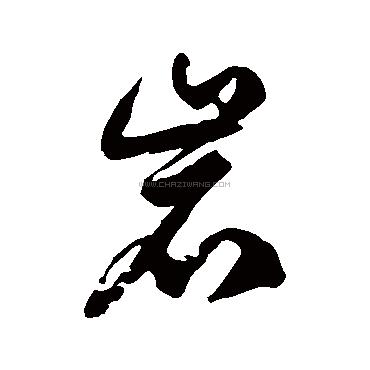 岩
WWW.CHAZIWANG.COM